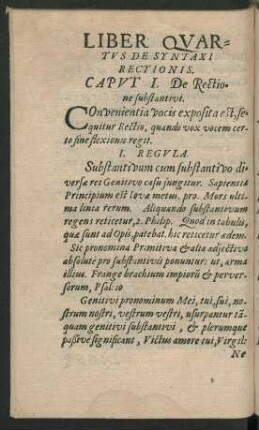 LIBER QVAR-
TVS DE SYNTAXI
RECTIONIS.
CAPVT I. De Rectio-
ne substantivi.
COnvenientia vocis exposita est, se-
quitur Rectio, quando vox vocem cer-
to fine flexionis regit.
I. REGVLA.
Substantivum cum substantivo di-
versæ rei Genitivo casu jungitur. Sapientiæ
Principium est Iova metus. pro. Mors ulti-
ma linea rerum. Aliquando substantivum
regens reticetur, 2. Philip. Quod in tabulis,
quæ sunt ad Opis, patebat. hic reticetur ædem.
Sic pronomina Primitiva & alia adjectiva
absolutè pro substantivis ponuntur: ut, arma
illius. Frange brachium impiorū & perver-
sorum, Psal: 10
Genitivi pronominum Mei, tui, sui, no-
strum nostri, vestrum vestri, usurpantur tā-
quam genitivi substantivi, & plerumque
passivè significant, Victus amore tui, Virgil:
Ne